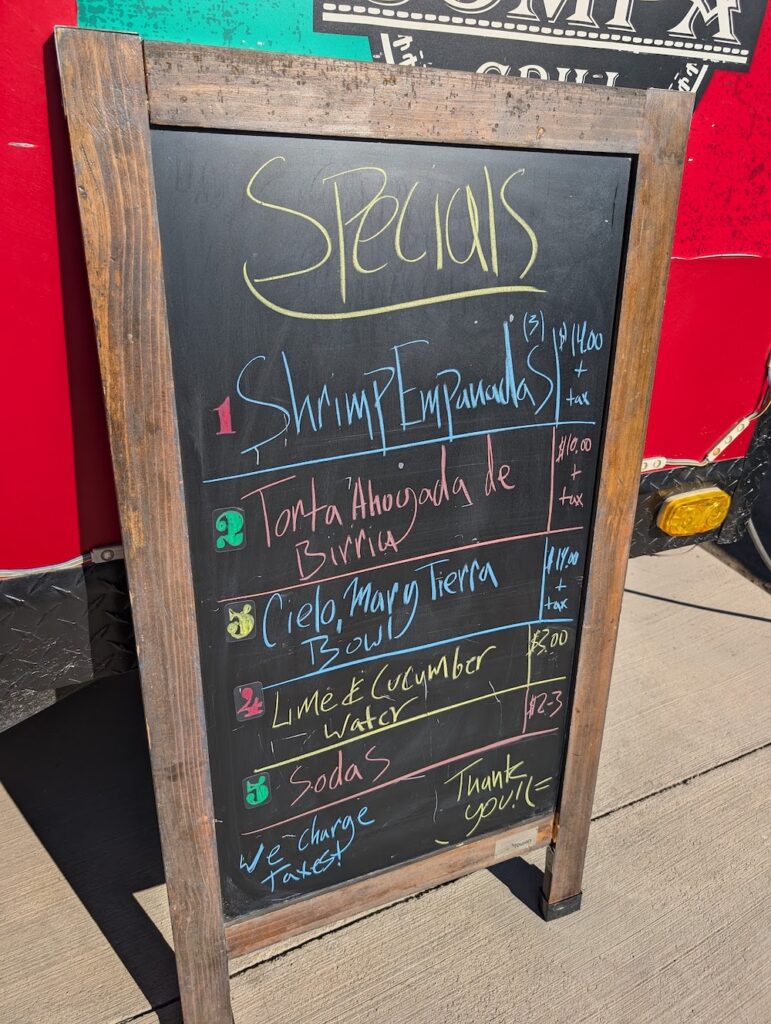 COMPA
GRILL
Specials
1 Shrimp Empanadas (3) $14.00 + tax
2 Torta Ahogada de
Birria $10.00 + tax
3 Cielo, Mar y Tierra
Bowl + tax
4 Lime & Cucumber
Water $3.00
5 Sodas $2-3
We charge
Taxes!
Thank
you! (=